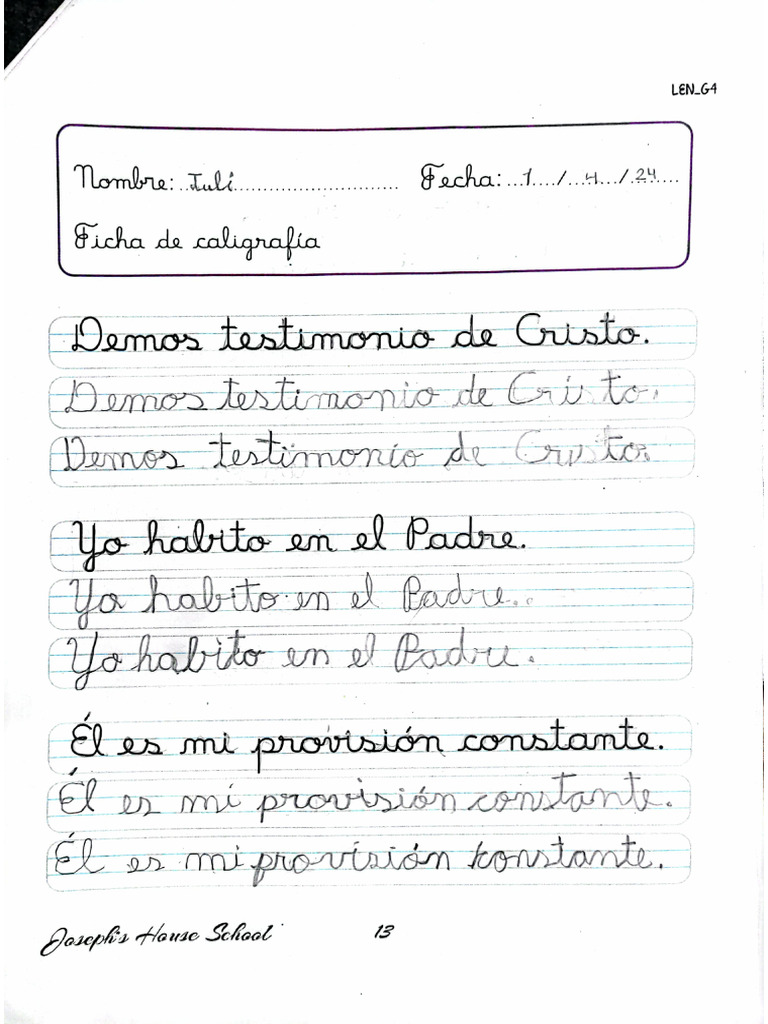 LEN_G4
Nombre: Juli Fecha: 1 / 4 / 24
Ficha de caligrafía
Demos testimonio de Cristo.
Demos testimonio de Cristo.
Demos testimonio de Cristo.
Yo habito en el Padre.
Yo habito en el Padre.
Yo habito en el Padre.
Él es mi provisión constante.
Él es mi provisión constante.
Él es mi provisión konstante.
Joseph's House School 13